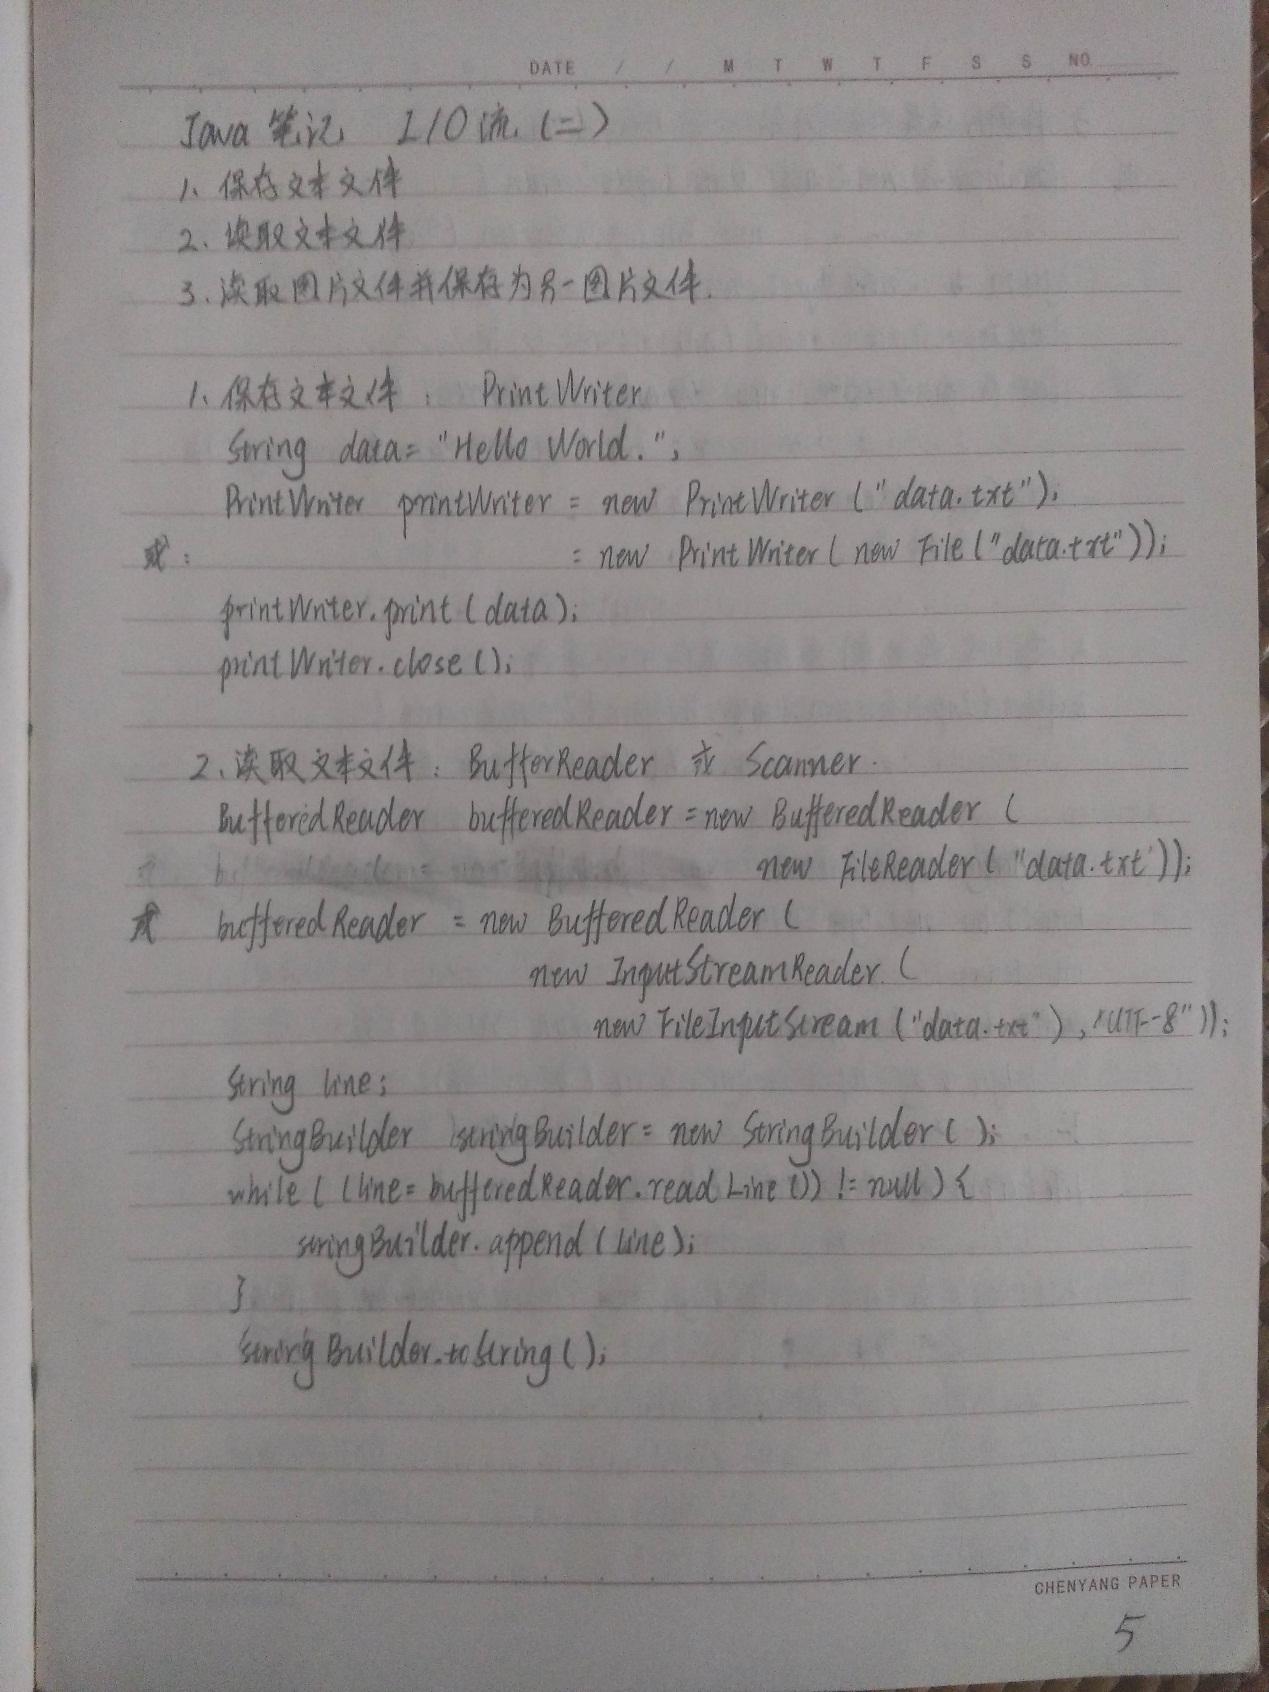 DATE / / M T W T F S S NO.
Java 笔记 I/O流 (二)
1、保存文本文件
2、读取文本文件
3、读取图片文件并保存为另一图片文件.
1、保存文本文件: PrintWriter
String data= "Hello World.";
PrintWriter printWriter = new PrintWriter ("data.txt");
或: = new PrintWriter ( new File ("data.txt"));
printWriter.print (data);
printWriter.close ();
2、读取文本文件: BufferReader 或 Scanner.
BufferedReader bufferedReader = new BufferedReader (
new FileReader ( "data.txt"));
或 bufferedReader = new BufferedReader (
new InputStreamReader (
new FileInputStream ("data.txt") , "UTF-8"));
String line;
StringBuilder stringBuilder = new StringBuilder ( );
while ( (line= bufferedReader.readLine ()) != null ) {
stringBuilder.append (line);
}
stringBuilder.toString ();
CHENYANG PAPER
5